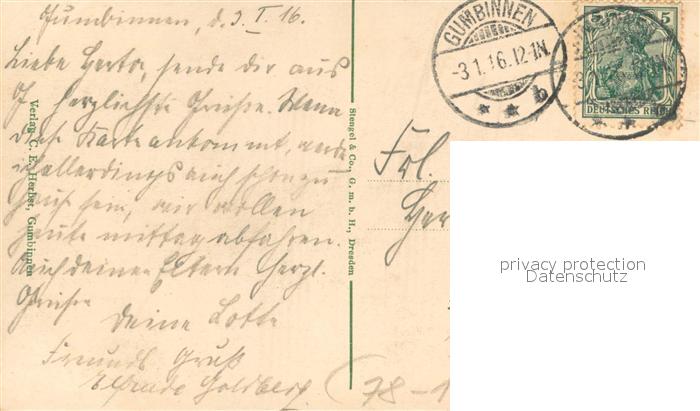 Gumbinnen, d. 3. I. 16.
Liebe Herta, sende dir aus
G. herzlichste Grüße. Wenn
diese Karte ankommt, werde
ich allerdings auch schon zu
Haus sein, wir wollen
heute mittag abfahren.
Auch deinen Eltern herzl.
Grüße
Deine Lotte
Freundl. Gruß
Goldberg
Verlag C. E. Herbst, Gumbinnen
Stengel & Co., G. m. b. H., Dresden
GUMBINNEN
-3.1.16.12-1N.
* * b
5 5
DEUTSCHES REICH
Frl.
Her
78-1
privacy protection
Datenschutz